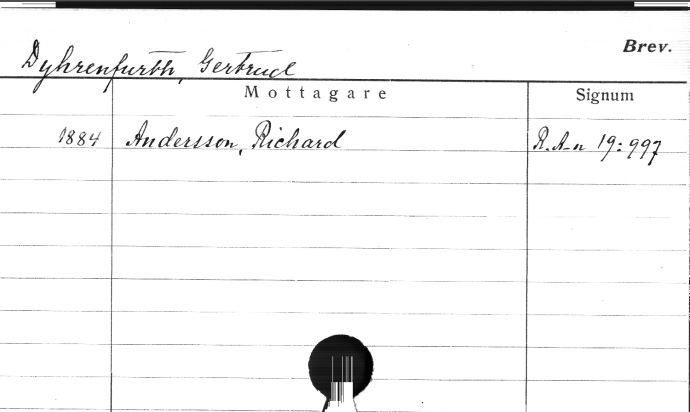 Brev.
Dyhrenfurth, Gertrud
Mottagare Signum
1884 Andersson, Richard R.A-n 19:997